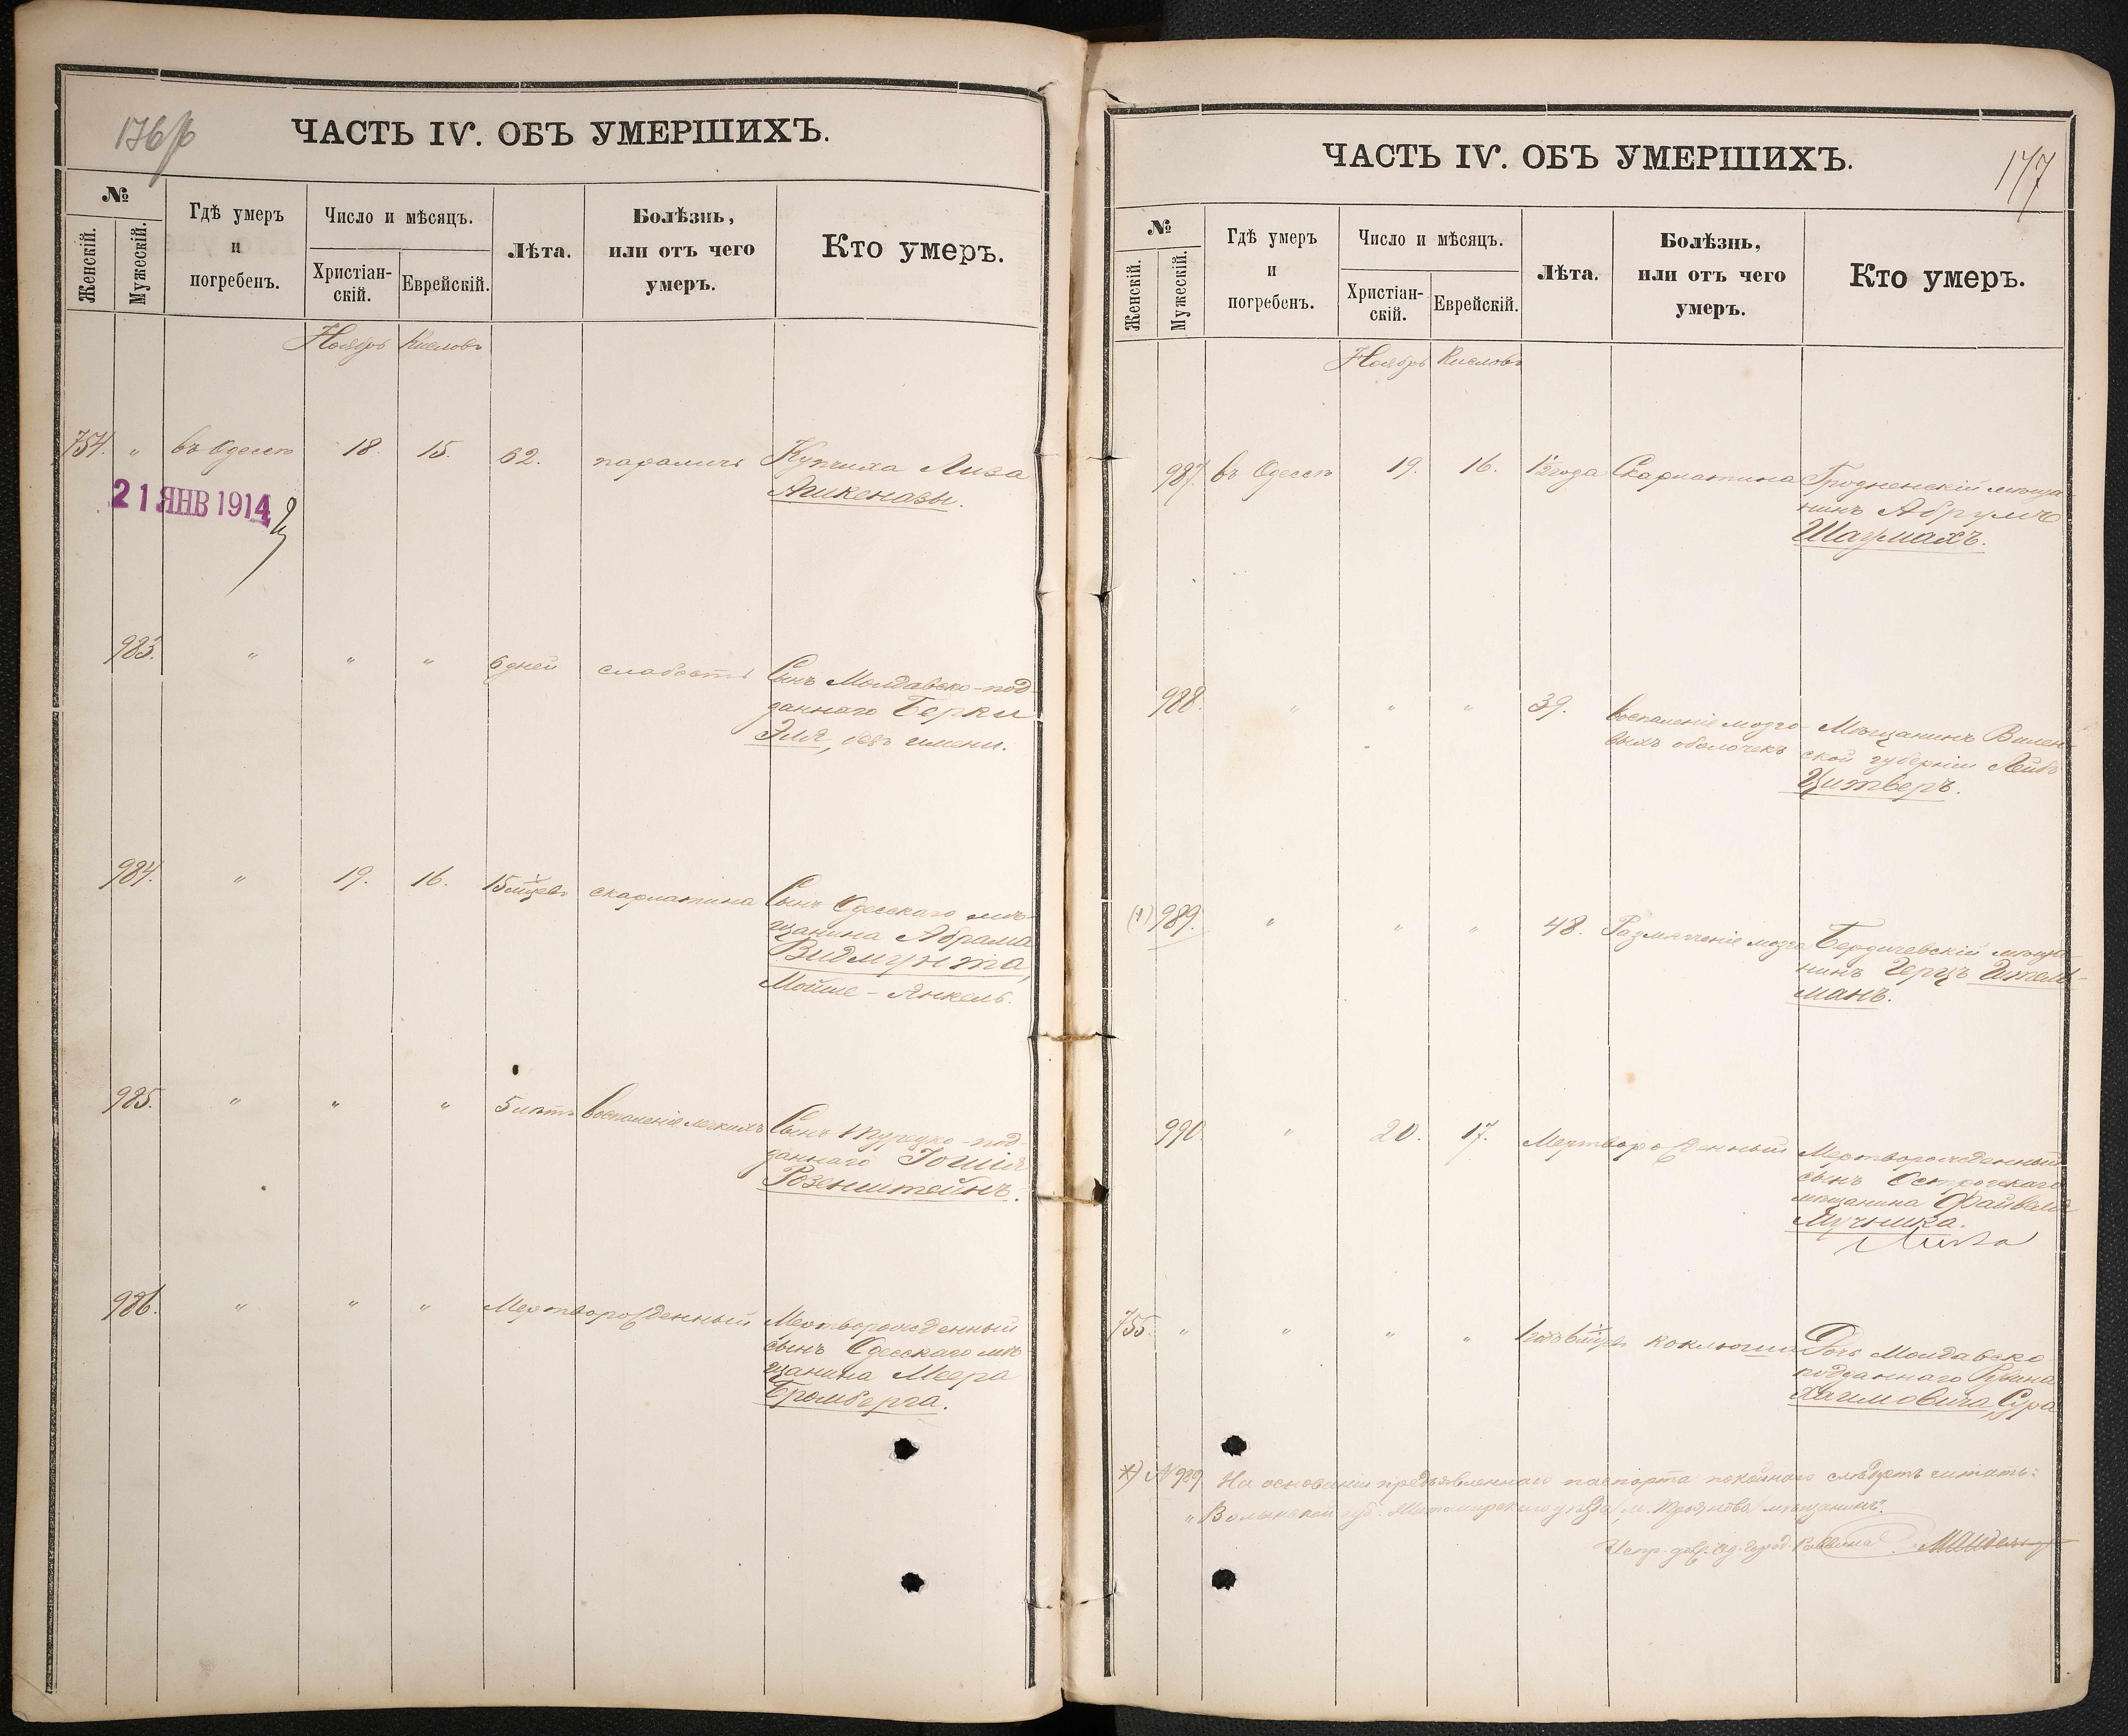 176 об
ЧАСТЬ IV. ОБЪ УМЕРШИХЪ.
№
Женскій.
Мужескій.
Гдѣ умеръ
и
погребенъ.
Число и мѣсяцъ.
Христіан-
скій.
Еврейскій.
Лѣта.
Болѣзнь,
или отъ чего
умеръ.
Кто умеръ.
Ноябрь Кислевъ
754. „ въ Одессѣ 18. 15. 62. параличъ Купчиха Лиза
Ашкенази.
21 ЯНВ 1914
983. „ „ „ 6 дней слабость Сынъ Молдавско-под-
даннаго Берки
Эля, безъ имени.
984. „ 19. 16. 15 мѣсцевъ скарлатина Сынъ Одесскаго мѣ-
щанина Абрама
Видмунта,
Мойше-Янкель.
985. „ „ „ 5 лѣтъ воспаленіе легкихъ Сынъ Турецко-под-
даннаго Іошія
Розенштейнъ.
986. „ „ „ Мертворожденный Мертворожденный
сынъ Одесскаго мѣ-
щанина Меера
Бромберга.
177
ЧАСТЬ IV. ОБЪ УМЕРШИХЪ.
№
Женскій.
Мужескій.
Гдѣ умеръ
и
погребенъ.
Число и мѣсяцъ.
Христіан-
скій.
Еврейскій.
Лѣта.
Болѣзнь,
или отъ чего
умеръ.
Кто умеръ.
Ноябрь Кислевъ
987. въ Одессѣ 19. 16. 1½ года Скарлатина Гродненскій мѣща-
нинъ Абрумъ
Шаумахъ.
988. „ „ „ 39. воспаленіе мозго- Мѣщанинъ Вилен-
выхъ оболочекъ ской губерніи Лейбъ
Цитверъ.
(*) 989. „ „ „ 48. Размягченіе мозга Бердичевскій мѣща-
нинъ Герцъ Гитель-
манъ.
990. „ 20. 17. Мертворожденный Мертворожденный
сынъ Острожскаго
мѣщанина Файвеля
Мучника.
755. „ „ „ „ 1 годъ 6 мѣсцевъ коклюшъ Дочь Молдавско-
подданнаго Рувина
Хаимовича, Сура
*) № 989 На основаніи предъявленнаго паспорта покойнаго слѣдуетъ читать:
„Волынской губ. Житомирскаго уѣзда, м. Троянова мѣщанинъ".
Испр. долж. Од. Город. Раввина